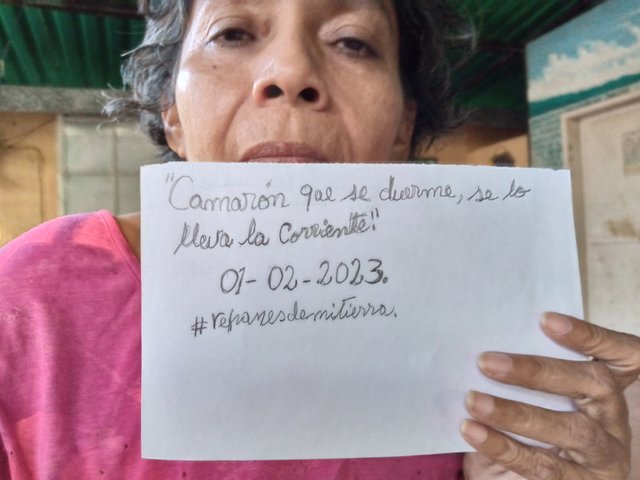 "Camarón que se duerme, se lo
lleva la corriente!"
01-02-2023.
#refranesdemitierra.